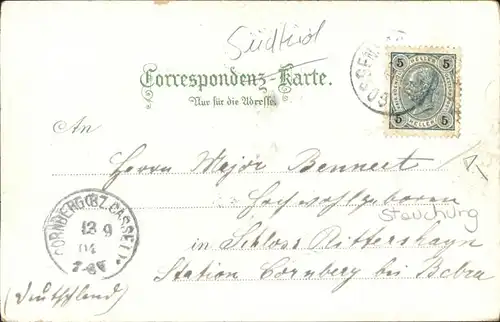 Südtirol
Correspondenz-Karte.
Nur für die Adresse.
5 HELLER 5
5 HELLER 5
GOSSENSASS
An
Herrn Major Bennert
Hochwohlgeboren
Stauchung
in Schloss Rittershayn
Station Cornberg bei Bebra
(Deutschland)
CORNBERG (BZ. CASSEL)
12 9
04
7-8V